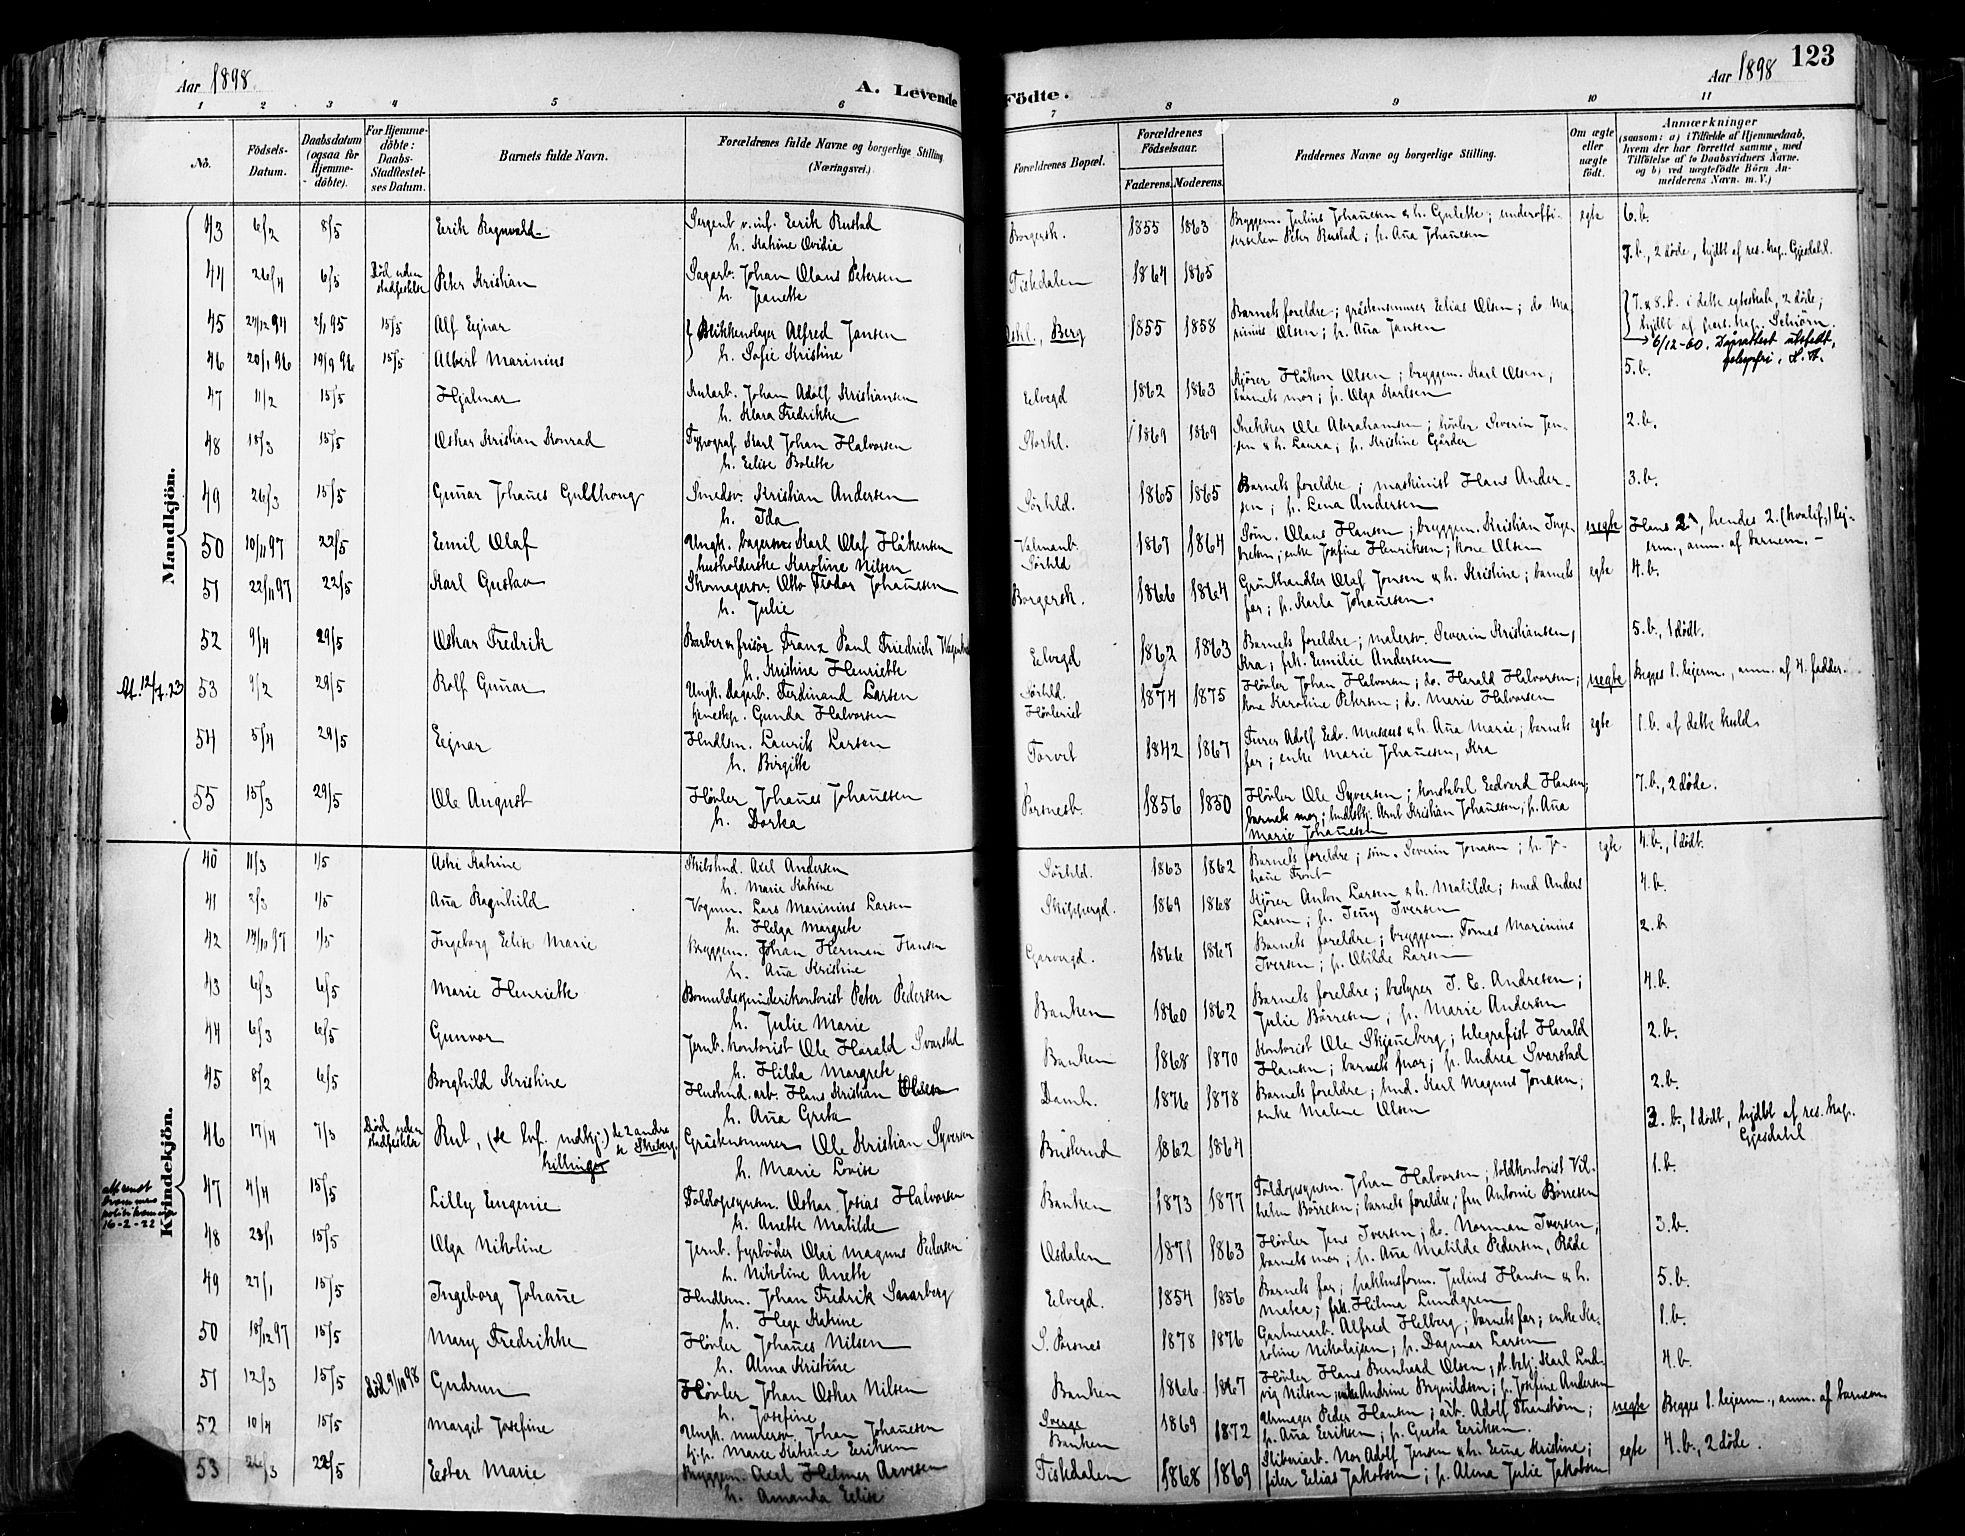 Aar 1898.
A. Levende
Födte.
Aar 1898
123
1 2 3 4 5 6 7 8 9 10 11
No.
Födsels-
Datum.
Daabsdatum
(ogsaa for
Hjemme-
döbte).
For Hjemme-
döbte:
Daabs-
Stadfæstel-
ses Datum.
Barnets fulde Navn.
Forældrenes fulde Navne og borgerlige Stilling
(Næringsvei.)
Forældrenes Bopæl.
Forældrenes
Födselsaar.
Faderens. Moderens.
Faddernes Navne og borgerlige Stilling.
Om ægte
eller
uægte
födt.
Anmærkninger
(saasom: a) i Tilfælde af Hjemmedaab,
hvem der har forrettet samme, med
Tilföielse af to Daabsvidners Navne.
og b) ved uægtefödte Börn An-
melderens Navn m. V.)
Mandkjön.
43 6/2 8/5 Eirik Ragnvald Sergent v. inf. Eirik Rustad
h. Katrine Ovidia
Borgersk. 1855 1863 Bryggem. Julius Johan̄esen & h. Gulette; underoffi-
Peter Rustad; p. An̄a Johan̄esen
egte 6. b.
44 26/4 6/5 Död uden
stadfestelse Peter Kristian Sagarb. Johan Olaus Petersen
h. Jeanette
Fiskdalen 1864 1865 9. b., 2 döde, hjdbt af res. kap. Gjesdahl.
45 27/12 94 2/1 95 15/5 Alf Ejnar Blikkenslager Alfred Jansen
46 20/1 96 19/9 96 15/5 Albert Marinius h. Sofie Kristine
Berg 1855 1858 Barnets foreldre; gråstensminer Elias Olsen; do Ma-
rinius Olsen; p. An̄a Jansen
7. & 8. b. i dette egteskab, 2 döde;
hjdbt af pers. kap. Schiörn.
6/12-60. Dåpsattest utstedt,
47 11/2 15/5 Hjalmar Kularb. Johan Adolf Kristiansen
h. Klara Fredrikke
Elvegd 1862 1863 Kjörer Håkon Olsen; bryggem. Karl Olsen;
barnets mor; p. Olga Karlsen
5. b.
48 18/3 15/5 Oskar Kristian Konrad Typograf Karl Johan Halvorsen
h. Elise Bolette
Storhl. 1869 1869 Snekker Ole Abrahamsen; hövler Severin Jen-
sen & h. Laura; p. Kristine Gårder
2. b.
49 26/3 15/5 Gun̄ar Johan̄es Gullhong Smedsv. Kristian Andersen
h. Ida
Sörhld. 1865 1865 Barnets foreldre; maskinist Hans Ander-
sen; p. Lena Andersen
3. b.
50 10/11 97 22/5 Emil Olaf Ungk. bagersv. Karl Olaf Håkensen
husholderske Karoline Nilsen
Sörhld 1867 1864 Söm. Olaus Hansen; bryggem. Kristian Inge-
bretsen; enke Josefine Henriksen; kone Olsen
uegte Hans 2., hendes 2. (kvalif.) lej-
erm., anm. af barnem.
51 22/11 97 22/5 Karl Gustav Skomagersv. Otto Teodor Johan̄esen
h. Julie
Borgersk. 1866 1864 Grönthandler Olaf Jonsen & h. Kristine; barnets
far; p. Karla Johan̄esen.
egte 4. b.
52 9/4 29/5 Oskar Fredrik Barber & frisör Franz Paul Friedrich
h. Kristine Henriette
Elvegd 1862 1863 Barnets foreldre; malersv. Severin Kristiansen,
Kra; frk. Emilie Andersen
5. b., 1 dödt.
53 9/2 29/5 Rolf Gun̄ar Ungk. dagarb. Ferdinand Larsen
tjenestep. Gunda Halvorsen
Sörhld.
Hövleriet 1874 1875 Hövler Johan Halvorsen; do. Harald Halvorsen;
kone Karoline Petersen; do. Marie Halvorsen
uegte Begges 1. lejerm., anm. af 4. fadder.
54 5/4 29/5 Ejnar Hndlsm. Laurits Larsen
h. Birgitte
Torvet 1842 1867 Furer Adolf Edv. & h. An̄a Marie; barnets
far; enke Marie Johan̄esen, Kra
egte 1. b. af dette kuld.
55 15/3 29/5 Ole August Hövler Johan̄es Johan̄esen
h. Dorka
Porsnesb. 1856 1850 Hövler Ole Syversen; konstabel Edvard Hansen;
barnets mor; Kristian Johan̄esen; p. An̄a
Marie Johan̄esen
7. b., 2 döde.
Kvindekjön.
40 11/3 1/5 Asti Katrine Axel Andersen
h. Marie Katrine
Sörhld. 1863 1862 Barnets foreldre; söm. Severin Jonasen; p. Jo-
han̄e
egte 4. b., 1 dödt.
41 2/3 1/5 An̄a Ragnhild Vognm. Lars Marinius Larsen
h. Helga Margrete
Skippergd. 1869 1868 Kjörer Anton Larsen & h. Matilde; smed Anders
Larsen; p. Jen̄y Iversen
4. b.
42 14/11 97 1/5 Ingeborg Elise Marie Bryggem. Johan Herman Hansen
h. An̄a Kristine
Garvergd. 1866 1867 Barnets foreldre; bryggem. Tomas Marinius
Iversen; p. Otilde Larsen
2. b.
43 6/3 6/5 Marie Henriette Bomuldsspinderikontorist Peter Pedersen
h. Julie Marie
Banken 1860 1862 Barnets foreldre; bestyrer J. C. Andresen;
Julie Börresen; p. Marie Andersen
4. b.
44 6/3 6/5 Gunvor Jernb. kontorist Ole Harald Svarstad
h. Hilda Margrete
Banken 1868 1870 Kontorist Ole Skjen̄eberg; telegrafist Harald
Hansen; barnets mor; p. Andrea Svarstad
2. b.
45 8/2 6/5 Borghild Kristine Hans Kristian Olsen
h. An̄a Greta
Damh. 1876 1878 Barnets foreldre; Karl Magnus Jonasen;
enke Malene Olsen
2. b.
46 17/4 7/3 Död uden
stadfestelse Rut, (se lvf. mdkj.) de 2 andre
trillinger
Gråstensminer Ole Kristian Syversen
h. Marie Lovise
Büslerud 1862 1864 3. b., 1 dödt, hjdbt af res. kap.
Gjesdahl
47 4/4 15/5 Lilly Eugenie Toldopsynsm. Oskar Josias Halvorsen
h. Anette Matilde
Banken 1873 1877 Toldopsynsm. Johan Halvorsen; toldkontorist Vil-
helm Börresen; barnets foreldre; fru Antonie Börresen
1. b.
48 23/1 15/5 Olga Nikoline Jernb. fyrböder Olai Magnus Pedersen
h. Nikoline Anette
Osdalen 1871 1863 Hövler Jens Iversen; do. Norman Iversen,
barnets mor; p. An̄a Matilde Pedersen, Råde
3. b.
49 27/1 15/5 Ingeborg Johan̄e Hndlsm. Johan Fredrik Saxarberg
h. Hege Katrine
Elvegd. 1854 1856 Barnets far; pakhusform. Julius Hansen & h.
Matea; frk. Hilma Lundgren
5. b.
50 18/12 97 15/5 Mary Fredrikke Hövler Johan̄es Nilsen
h. Alma Kristine
S. Porsnes 1878 1876 Gartnerarb. Alfred Helberg; barnets far; enke Ka-
roline Nikolajsen; p. Dagmar Larsen
1. b.
51 12/3 15/5 Död 9/10 98 Gudrun Hövler Johan Oskar Nilsen
h. Josefine
Banken 1866 1867 Hövler Hans Bernhard Olsen; st. betj. Karl Lud-
vig Nilsen; enke Andrine Brynildsen; p. Josefine Andersen
4. b.
52 10/4 15/5 Margit Josefine Ungk. murersv. Johan Johan̄esen
tj. p. Maren Katrine Eriksen
Sverge
Banken 1869 1872 Uhrmager Peder Hansen; arb. Adolf Stranström;
p. An̄a Eriksen; p. Gusta Eriksen.
uegte Begges 1. lejerm., anm. af barnem.
53 26/3 22/5 Ester Marie Bryggem. Axel Helmer Arvesen
h. Amanda Elise
Fiskdalen 1868 1869 Sliberiarb. Nor Adolf Jensen & h. Em̄a Kristine;
filer Elias Jakobsen; p. Alma Julie Jakobsen
egte 4. b., 2 döde.
At. 12/7. 23
16-2-22